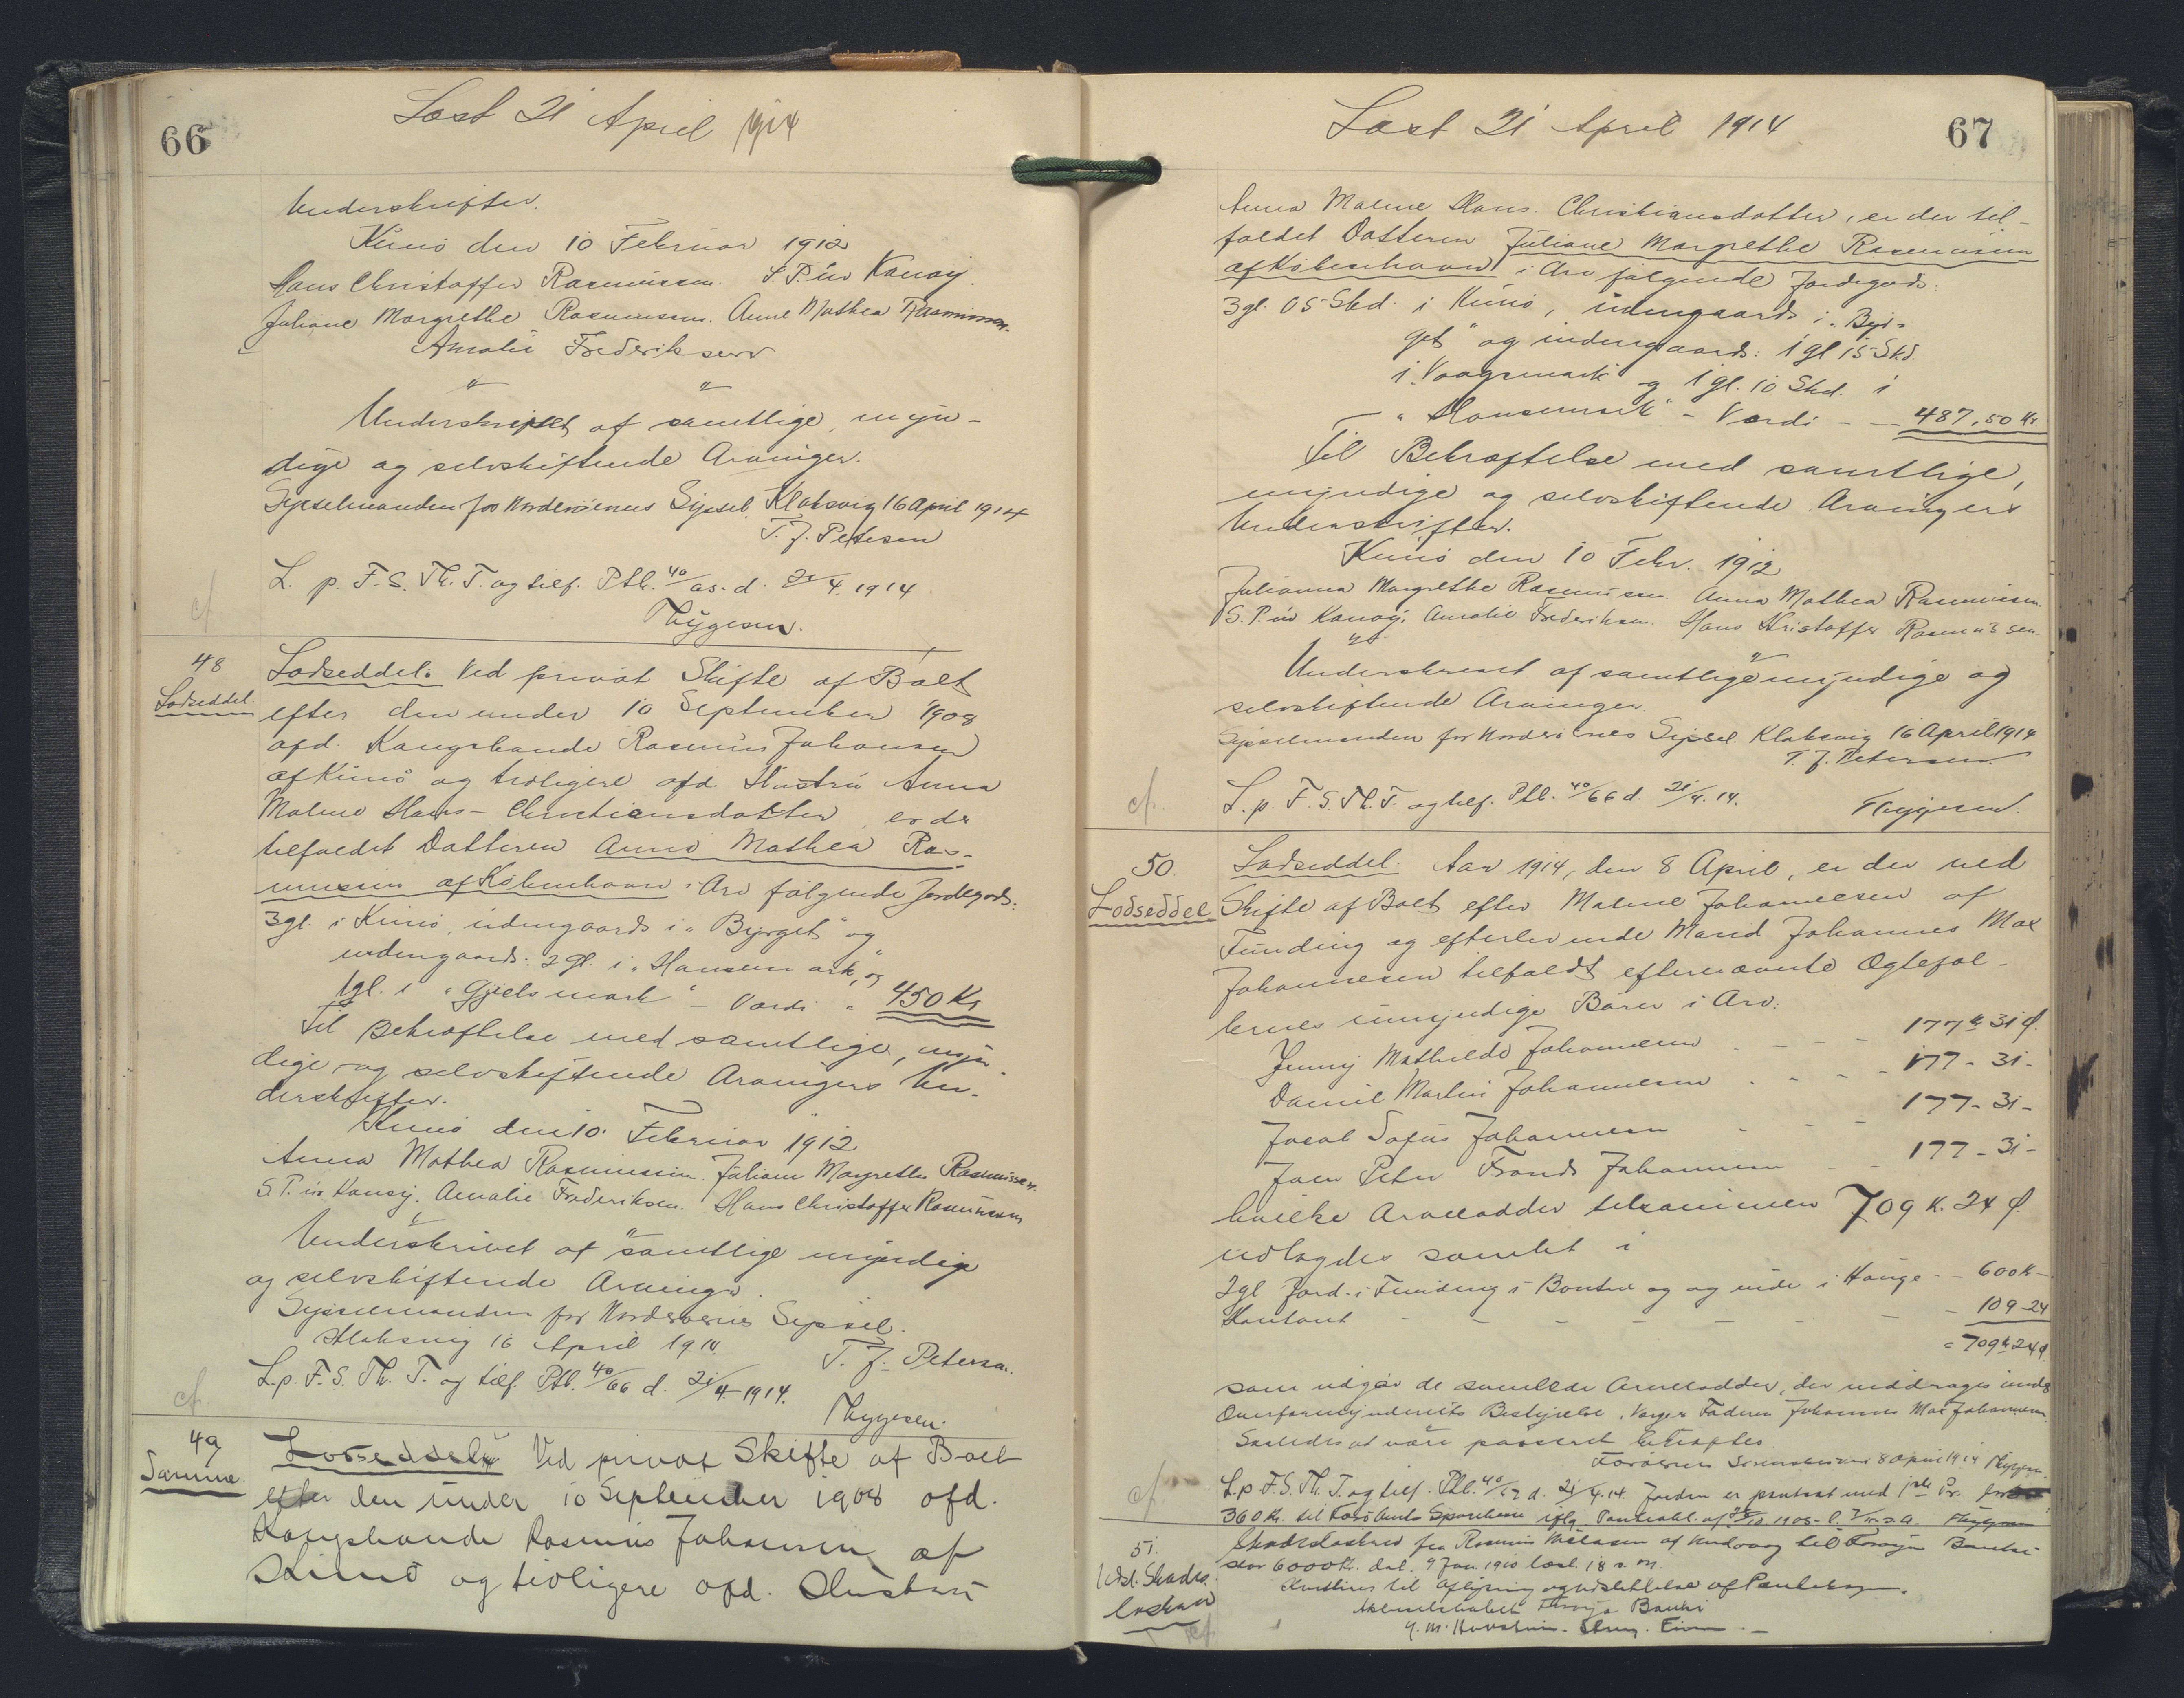 66
Læst 21 April 1914
Underskrifter.
Kunö den 10 Februar 1912
Hans Christoffer Rasmussen. S. P. úr Kanøy.
Juliane Margrethe Rasmussen. Anne Mathea Rasmussen.
Amalie Frederiksen
" "
Underskrevet af samtlige, myn-
dige og selvskiftende Arvinger.
Sysselmanden for Norderöernes Syssel, Klaksvig 16 April 1914
T. J. Petersen
L. p. F. S. Th. T. og tilf. Ptb. 40/65. d. 21/4 1914
Thygesen.
cf.
48
Lodseddel.
Lodseddel. Ved privat Skifte af Boet
efter den under 10 September 1908
afd. Kongsbonde Rasmus Johansen
af Kunö og tidligere afd. Hustru Anna
Malene Hans-Christiansdatter, er der
tilfaldet Datteren Anna Mathea Ras-
mussen af Köbenhavn i Arv følgende Jordegods:
3 gl. i Kunö, udengaards i "Byrget" og
indengaards: 2 gl. i "Hansemark" og
1 gl. i "Gjelsmark" - Værdi " 450 Kr
Til Bekræftelse med samtlige, myn-
dige og selvskiftende Arvingers Un-
derskrifter.
Kunö den 10 Februar 1912
Anna Mathea Rasmussen. Juliane Margrethe Rasmussen.
S. P. úr Kanøy. Amalie Frederiksen. Hans Christoffer Rasmussen
" "
Underskrivet af samtlige myndige
og selvskiftende Arvinger.
Sysselmanden for Norderöernes Syssel.
Klaksvig 16 April 1914
T. J. Petersen.
L. p. F. S. Th. T. og tilf. Ptb. 40/66 d. 21/4 1914.
Thygesen.
cf.
49
Samme
Lodseddel. Ved privat Skifte af Boet
efter den under 10 September 1908 afd.
Kongsbonde Rasmus Johansen af
Kunö og tidligere afd. Hustru
67
Læst 21 April 1914
Anna Malene Hans Christiansdatter, er der til-
faldet Datteren Juliane Margrethe Rasmussen
af Köbenhavn i Arv følgende Jordegods:
3 gl. 05 Skd. i Kunö, udengaards i "Byr-
get" og indengaards: 1 gl 15 Skd.
i "Vaagsmark" og 1 gl. 10 Skd. i
"Hansemark" - Værdi - 487,50 Kr
Til Bekræftelse med samtlige,
myndige og selvskiftende Arvingers
Underskrifter.
Kunö den 10 Febr. 1912
Julianna Margrethe Rasmussen. Anna Mathea Rasmussen.
S. P. úr Kanøy. Amalie Frederiksen. Hans Kristoffer Rasmussen.
" "
Underskrevet af samtlige myndige og
selvskiftende Arvinger.
Sysselmanden for Norderöernes Syssel. Klaksvig 16 April 1914
T. J. Petersen
L. p. F. S. Th. T. og tilf. Ptb. 40/66 d. 21/4. 14.
Thygesen.
cf.
50
Lodseddel
Lodseddel. Aar 1914, den 8 April, er der ved
Skifte af Boet efter Malene Johannesen af
Funding og efterlevende Mand Johannes Max
Johannesen tilfaldt efternævnte Ægtefol-
kenes umyndige Börn i Arv:
Jenny Mathilde Johannesen - - - 177 Kr 31 Ø.
Daniel Martin Johannesen - - - 177 - 31 -
Jacob Sofus Johannesen - - - 177 - 31 -
Joen Peter Trond Johannesen - - 177 - 31 -
hvilke Arvelodder tilsammen 709 K. 24 Ø.
udlagdes samlet i
2 gl Jord i Funding i og inde i Hauge - 600 Kr -
Kontant - - - - - 109 - 24
= 709 Kr 24 Ø.
som udgør de samlede Arvelodder, der inddrages under
Overformynderiets Bestyrelse. Værge Faderen Johannes Max Johannesen.
Saaledes at være passeret bekræftes
8 April 1914 Thygesen
L. p. F. S. Th. T. og tilf. Ptb. 40/67 d. 21/4. 14. Jorden er pantsat med 1ste Pr. for
360 Kr. til Færö Amts Sparekasse iflg. Panteobl. af
cf.
51.
Udsl. Skades-
løsbrev
Skadeslösbrev fra Rasmus Nielasen af til Føroya Banki
stor 6000 Kr. dat. 9 Jan. 1910 læst 18 s. M.
Kvitteres til Aflysning og Udslettelse af Pantebogen.
Aktieselskabet Føroya Banki
cf.